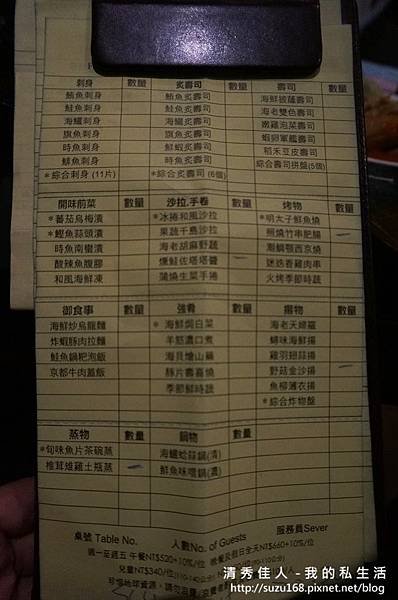 刺身 數量 炙壽司 數量 壽司 數量
鮪魚刺身 鮪魚炙壽司 海鮮披薩壽司
鮭魚刺身 鮭魚炙壽司 海老雙色壽司
海鱺刺身 海鱺炙壽司 嫩雞泡菜壽司
旗魚刺身 旗魚炙壽司 蝦卵軍艦壽司
時魚刺身 鮮蝦炙壽司 稻禾豆皮壽司
鯡魚刺身 時魚炙壽司 綜合壽司拼盤(5個)
*綜合刺身 (11片) *綜合炙壽司 (6個)
開味前菜 數量 沙拉.手卷 數量 烤物 數量
*蕃茄烏梅漬 *冰捲和風沙拉 *明太子鮮魚燒
*鰹魚蒜頭漬 果蔬千島沙拉 照燒竹串肥腸
時魚南蠻漬 海老胡麻野蔬 海鱺頸西京燒
酸辣魚腹膠 燻鮭佐塔塔醬 迷迭香雞肉串
和風海鮮凍 蒲燒生菜手捲 火烤季節時蔬
御食事 數量 強肴 數量 揚物 數量
海鮮炒烏龍麵 *海鮮焗白菜 海老天婦羅
炸蝦豚肉拉麵 羊筋濃口煮 鱘味海鮮揚
鮭魚鍋粑泡飯 海貝燴山藥 雞羽翅蒜揚
京都牛肉蓋飯 豚片壽喜燒 野菇金沙揚
季節鮮時蔬 魚柳薄衣揚
*綜合炸物盤
蒸物 數量 鍋物 數量
*旬味魚片茶碗蒸 海鱺蛤蒜鍋(清)
椎茸雄雞土瓶蒸 鮮魚味噌鍋(濃)
桌號 Table No. 人數No. of Guests 服務員Sever
週一至週五 午餐NT$520+10%/位 晚餐及假日全天NT$660+10%/位
兒童NT$340/位
清秀佳人 - 我的私生活
http://suzu168.pixnet.net/blog